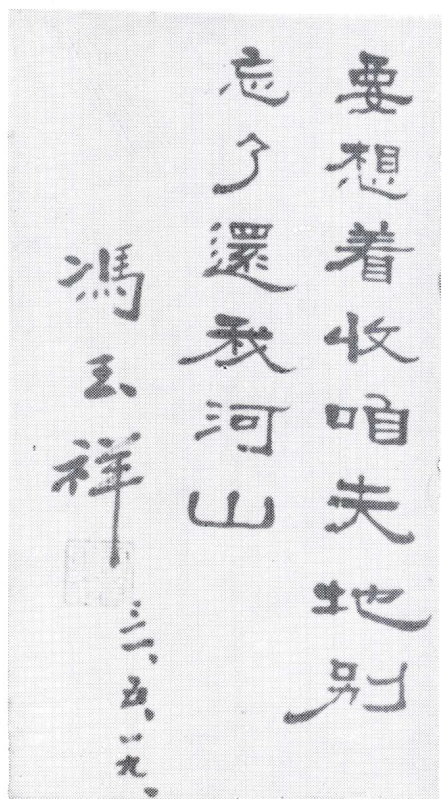 要想着收咱失地别
忘了還我河山
馮玉祥
三一、五、一九、